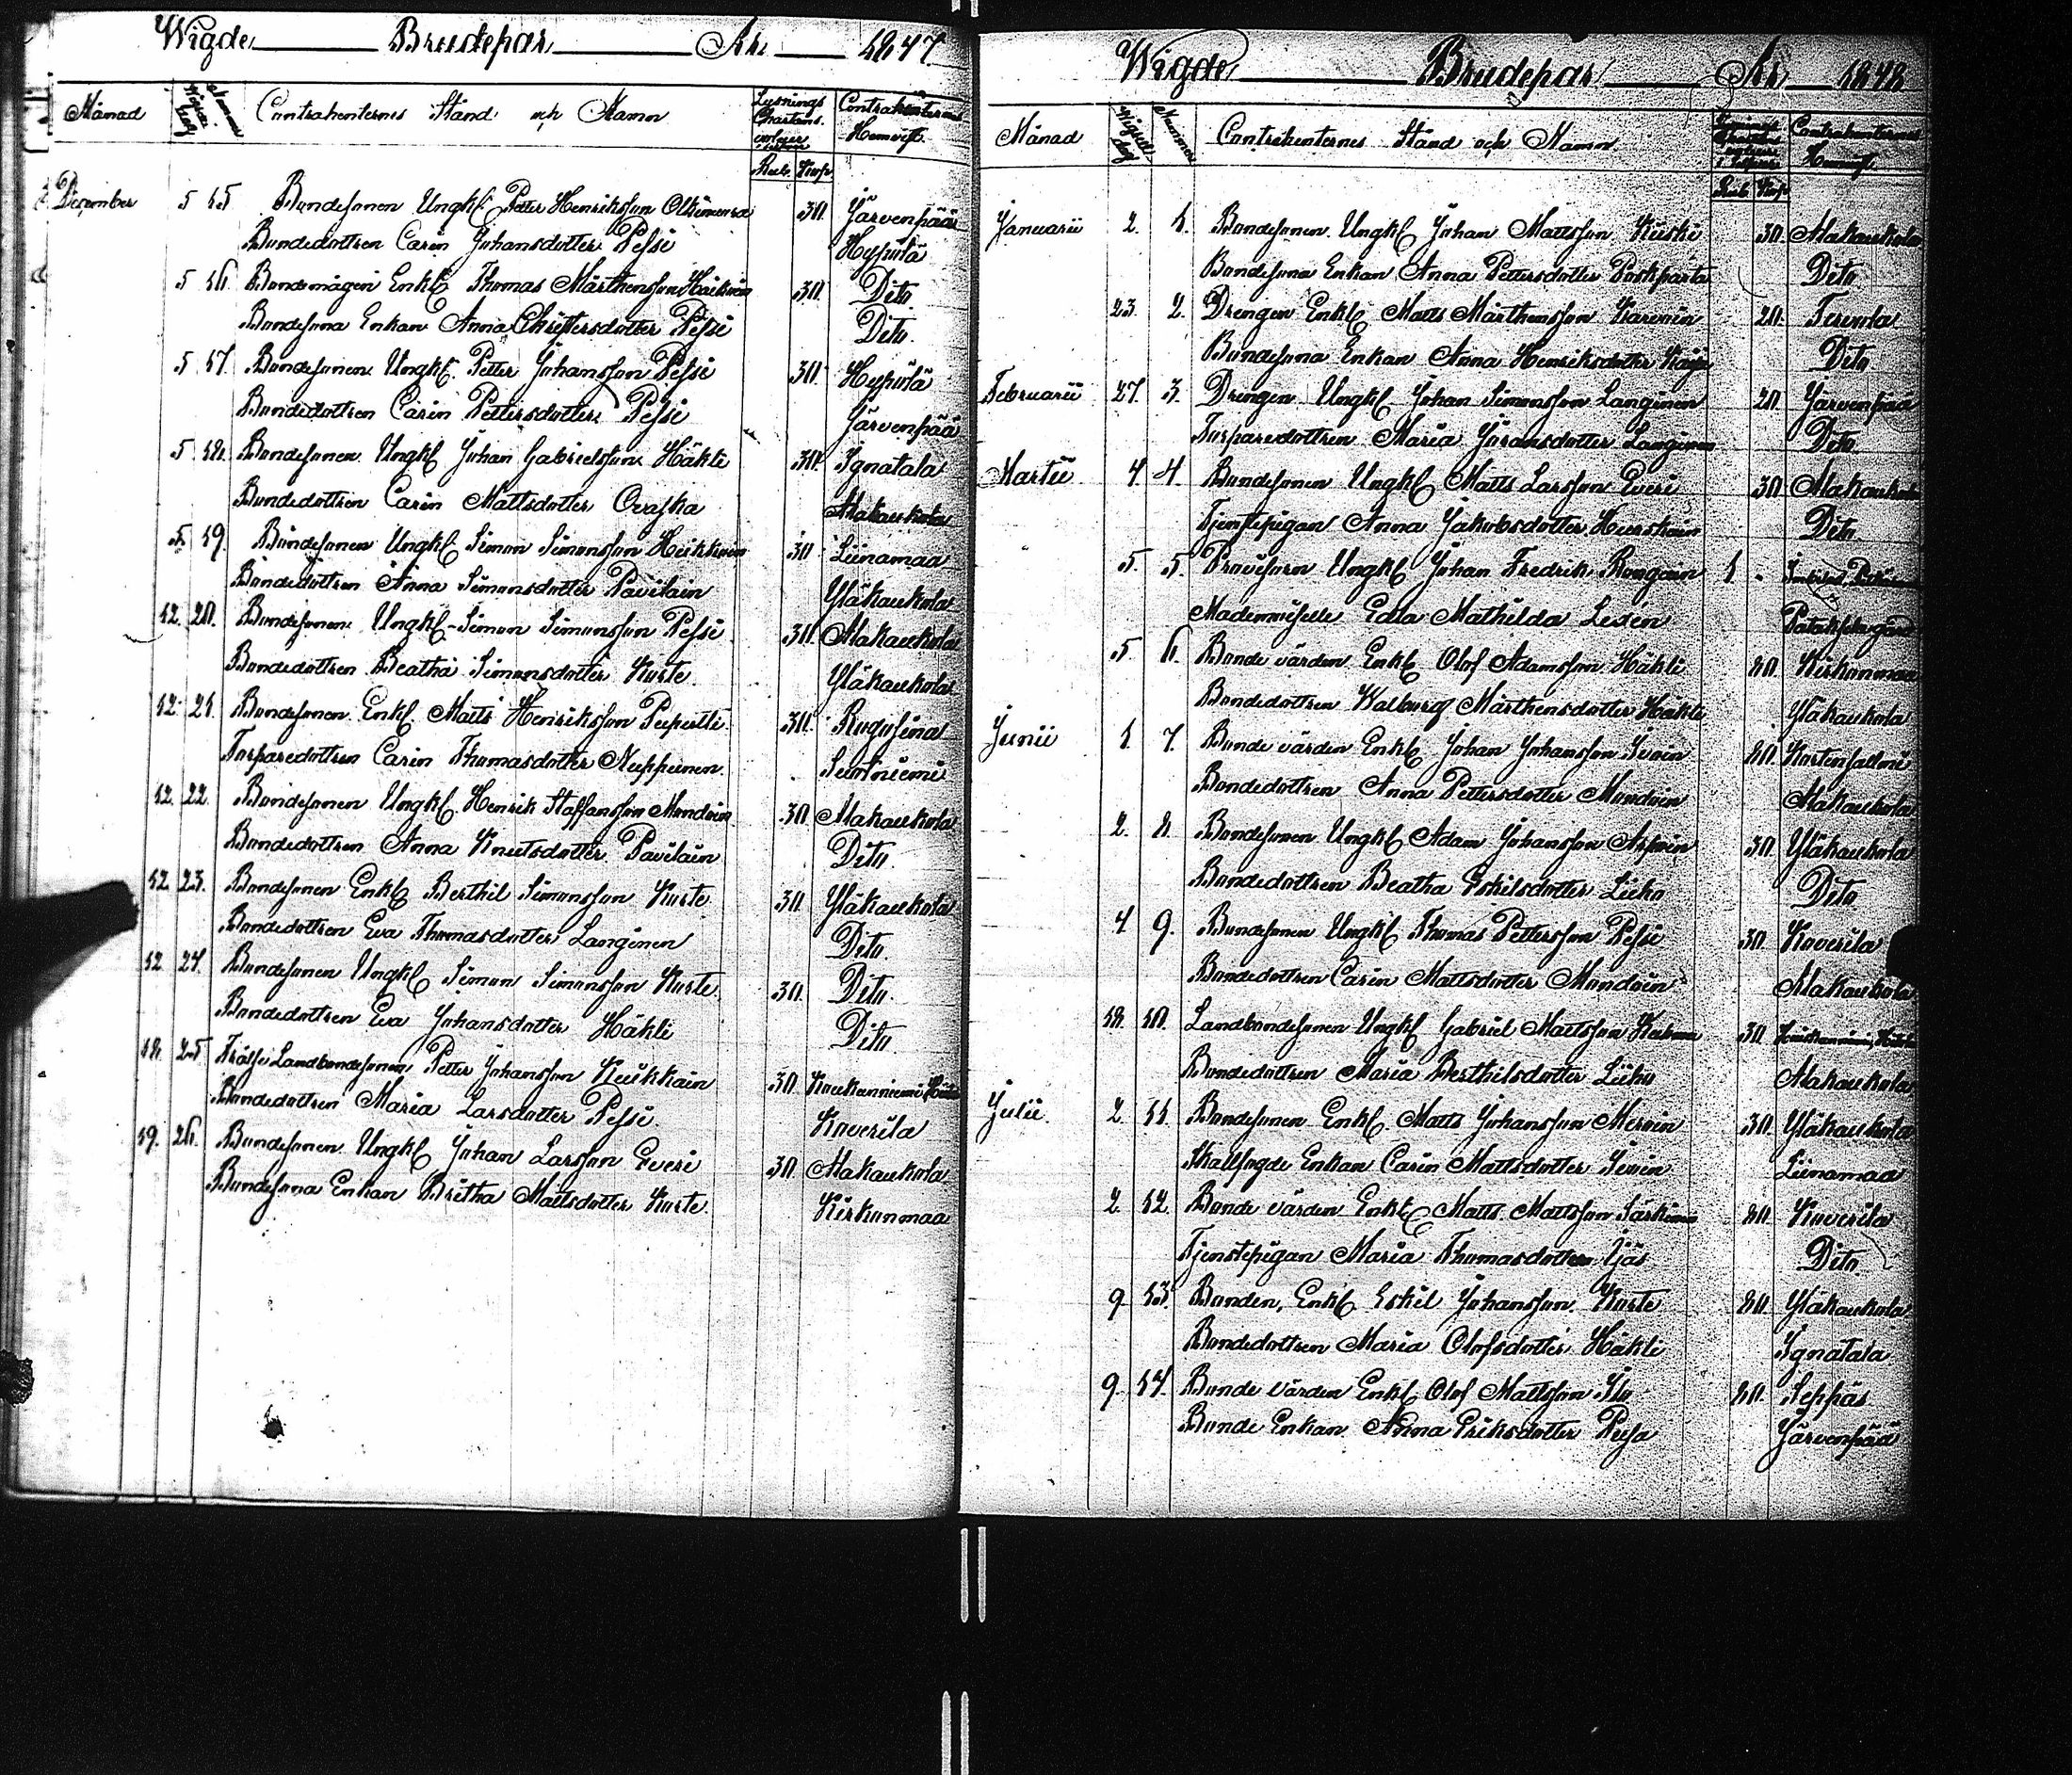 Wigde Brudepar År 1847
Månad Wigsel dag Nummer Contrahenternes Stånd och Namn Lysnings Charta Contrahenternes Hemvist
Rub. Kop.
December 5 15 Bondesonen Ungkl Petter Henriksson Olkinuora 30 Järvenpää
Bondedottren Carin Johansdotter Pessi Hyppölä
5 16 Bondemågen Enkl Thomas Mårthensson 30 Dito
Bondesona Enkan Anna Christersdotter Pessi Dito
5 17 Bondesonen Ungkl. Petter Johansson Pessi 30 Hyppölä
Bondedottren Carin Pettersdotter Pessi Järvenpää
5 18 Bondesonen Ungkl Johan Gabrielsson Häkli 30 Ignatala
Bondedottren Carin Mattsdotter Oraska Alakaukola
5 19 Bondesonen Ungkl Simon Simonsson 30 Liinamaa
Bondedottren Anna Simonsdotter Pavilain Yläkaukola
12 20 Bondesonen Ungkl Simon Simonsson Pessi 30 Alakaukola
Bondedottren Beatha Simonsdotter Kurte Yläkaukola
12 21 Bondesonen Enkl. Matts Henriksson 30
Torparedottren Carin Thomasdotter Nuppunen
12 22 Bondesonen Ungkl Henrik Staffansson Mondoin 30 Alakaukola
Bondedottren Anna Knutsdotter Pavilain Dito
12 23 Bondesonen Enkl Berthil Simonsson Kurte 30 Yläkaukola
Bondedottren Eva Thomasdotter Langinen Dito
12 24 Bondesonen Ungkl Simon Simonsson Kurte 30 Dito
Bondedottren Eva Johansdotter Häkli Dito
18 25 Frälse Landbondesonen Petter Johansson Kuikkain 30
Bondedottren Maria Larsdotter Pessi Koverila
19 26 Bondesonen Ungkl Johan Larsson Everi 30 Alakaukola
Bondesona Enkan Britha Mattsdotter Kurte Kirkonmaa
Wigde Brudepar År 1848
Månad Wigsel dag Nummer Contrahenternes Stånd och Namn Contrahenternes Hemvist
Rub. Kop.
Januarii 2 1 Bondesonen Ungkl Johan Mattsson Kiiski 30 Alakaukola
Bondesona Enkan Anna Pettersdotter Poskiparta Dito
23 2 Drengen Enkl Matts Mårthensson Karonin 20 Terenla
Bondesona Enkan Anna Henriksdotter Dito
Februarii 27 3 Drengen Ungkl Johan Simonsson Langinen 20 Järvenpää
Torparedottren Maria Göransdotter Langinen Dito
Martii 4 4 Bondesonen Ungkl Matts Larsson Everi 30 Alakaukola
Tjenstepigan Anna Jakobsdotter Dito
5 5 Ungkl Johan Fredrik 1 -
Mademoiselle Edla Mathilda Lexén
5 6 Bonde värden Enkl Olof Adamsson Häkli 80 Kirkonmaa
Bondedottren Walborg Mårthensdotter Häkli Yläkaukola
Junii 1 7 Bonde värden Enkl Johan Johansson 80
Bondedottren Anna Pettersdotter Mondoin Alakaukola
2 8 Bondesonen Ungkl Adam Johansson Arpoin 30 Yläkaukola
Bondedottren Beatha Eskilsdotter Liiho Dito
4 9 Bondesonen Ungkl Thomas Pettersson Pessi 30 Koverila
Bondedottren Carin Mattsdotter Mondoin Alakaukola
18 10 Landbondesonen Ungkl Gabriel Mattsson 30
Bondedottren Maria Berthilsdotter Liiho Alakaukola
Julii 2 11 Bondesonen Enkl Matts Johansson Meroin 30 Yläkaukola
Enkan Carin Mattsdotter Liinamaa
2 12 Bonde värden Enkl Matts Mattsson 80 Koverila
Tjenstepigan Maria Thomasdotter Ijäs Dito
9 13 Bonden, Enkl Eskil Johansson Kurte 80 Yläkaukola
Bondedottren Maria Olofsdotter Häkli Ignatala
9 14 Bonde värden Enkl Olof Mattsson Ilo 80 Seppäs
Bonde Enkan Anna Eriksdotter Pusa Järvenpää